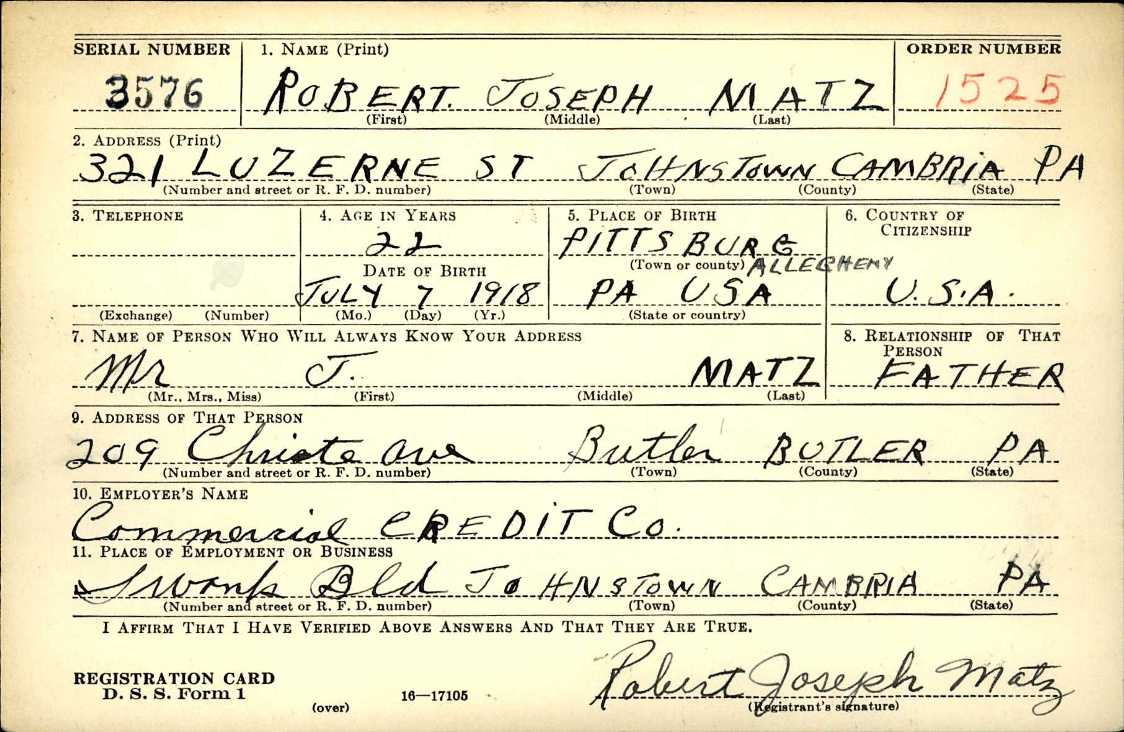 SERIAL NUMBER 1. NAME (Print) ORDER NUMBER
3576 ROBERT. JOSEPH MATZ 1525
(First) (Middle) (Last)
2. ADDRESS (Print)
321 LUZERNE ST JOHNSTOWN CAMBRIA PA
(Number and street or R. F. D. number) (Town) (County) (State)
3. TELEPHONE 4. AGE IN YEARS 5. PLACE OF BIRTH 6. COUNTRY OF CITIZENSHIP
22 PITTSBURG
DATE OF BIRTH (Town or county) ALLEGHENY
JULY 7 1918 PA USA U.S.A.
(Exchange) (Number) (Mo.) (Day) (Yr.) (State or country)
7. NAME OF PERSON WHO WILL ALWAYS KNOW YOUR ADDRESS 8. RELATIONSHIP OF THAT PERSON
Mr J. MATZ FATHER
(Mr., Mrs., Miss) (First) (Middle) (Last)
9. ADDRESS OF THAT PERSON
209 Christe Ave Butler BUTLER PA
(Number and street or R. F. D. number) (Town) (County) (State)
10. EMPLOYER'S NAME
Commercial CREDIT Co.
11. PLACE OF EMPLOYMENT OR BUSINESS
Swank Bld JOHNSTOWN CAMBRIA PA
(Number and street or R. F. D. number) (Town) (County) (State)
I AFFIRM THAT I HAVE VERIFIED ABOVE ANSWERS AND THAT THEY ARE TRUE.
REGISTRATION CARD
D. S. S. Form 1 16—17105 Robert Joseph Matz
(over) (Registrant's signature)